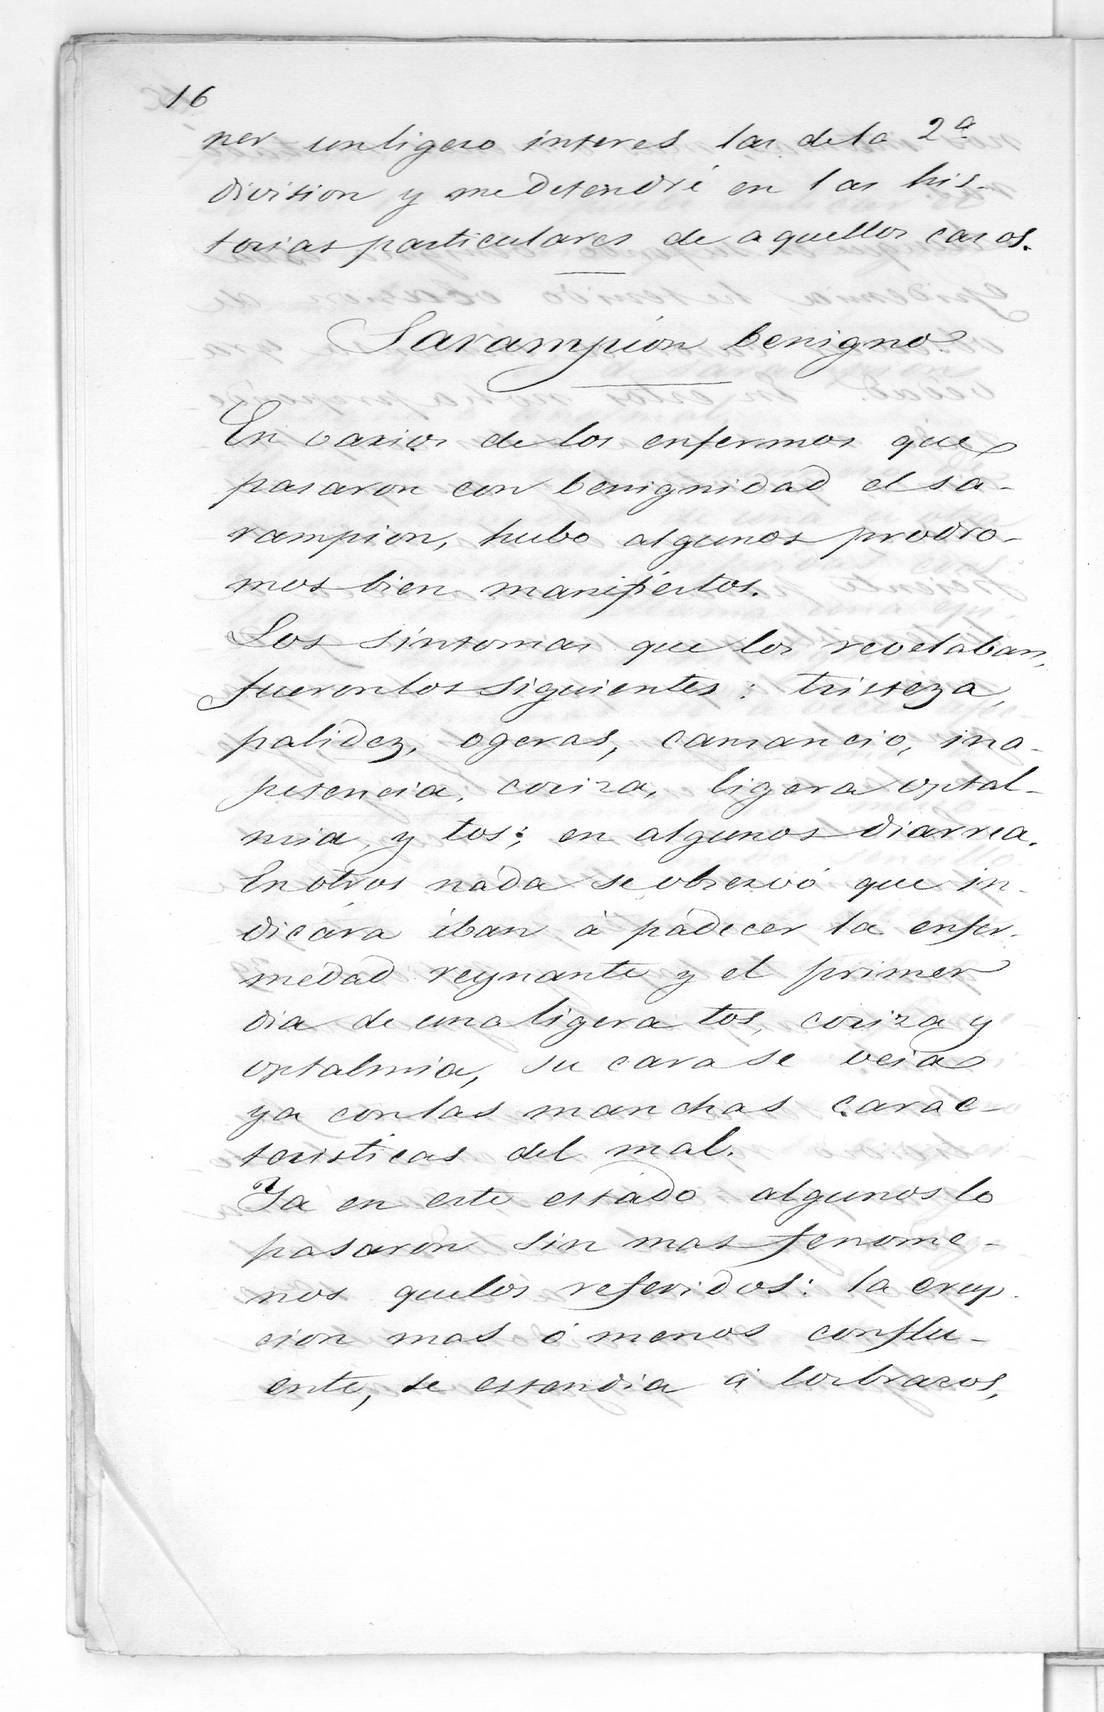 16
ner un ligero interes las de la 2ª
division y me detendré en las his-
torias particulares de aquellos casos.
Sarampion benigno.
En varios de los enfermos que
pasaron con benignidad el sa-
rampion, hubo algunos prodro-
mos bien manifiestos.
Los síntomas que los revelaban,
fueron los siguientes: tristeza,
palidez, ogeras, cansancio, ina-
petencia, coriza, ligera optal-
mia, y tos; en algunos diarrea.
En otros nada se observó que in-
dicára iban á padecer la enfer-
medad reynante y el primer
dia de una ligera tos, coriza y
optalmia, su cara se veia
ya con las manchas carac-
teristicas del mal.
Ya en este estado algunos lo
pasaron sin mas fenome-
nos que los referidos: la erup-
cion mas ó menos conflu-
ente, se estendia á los brazos,